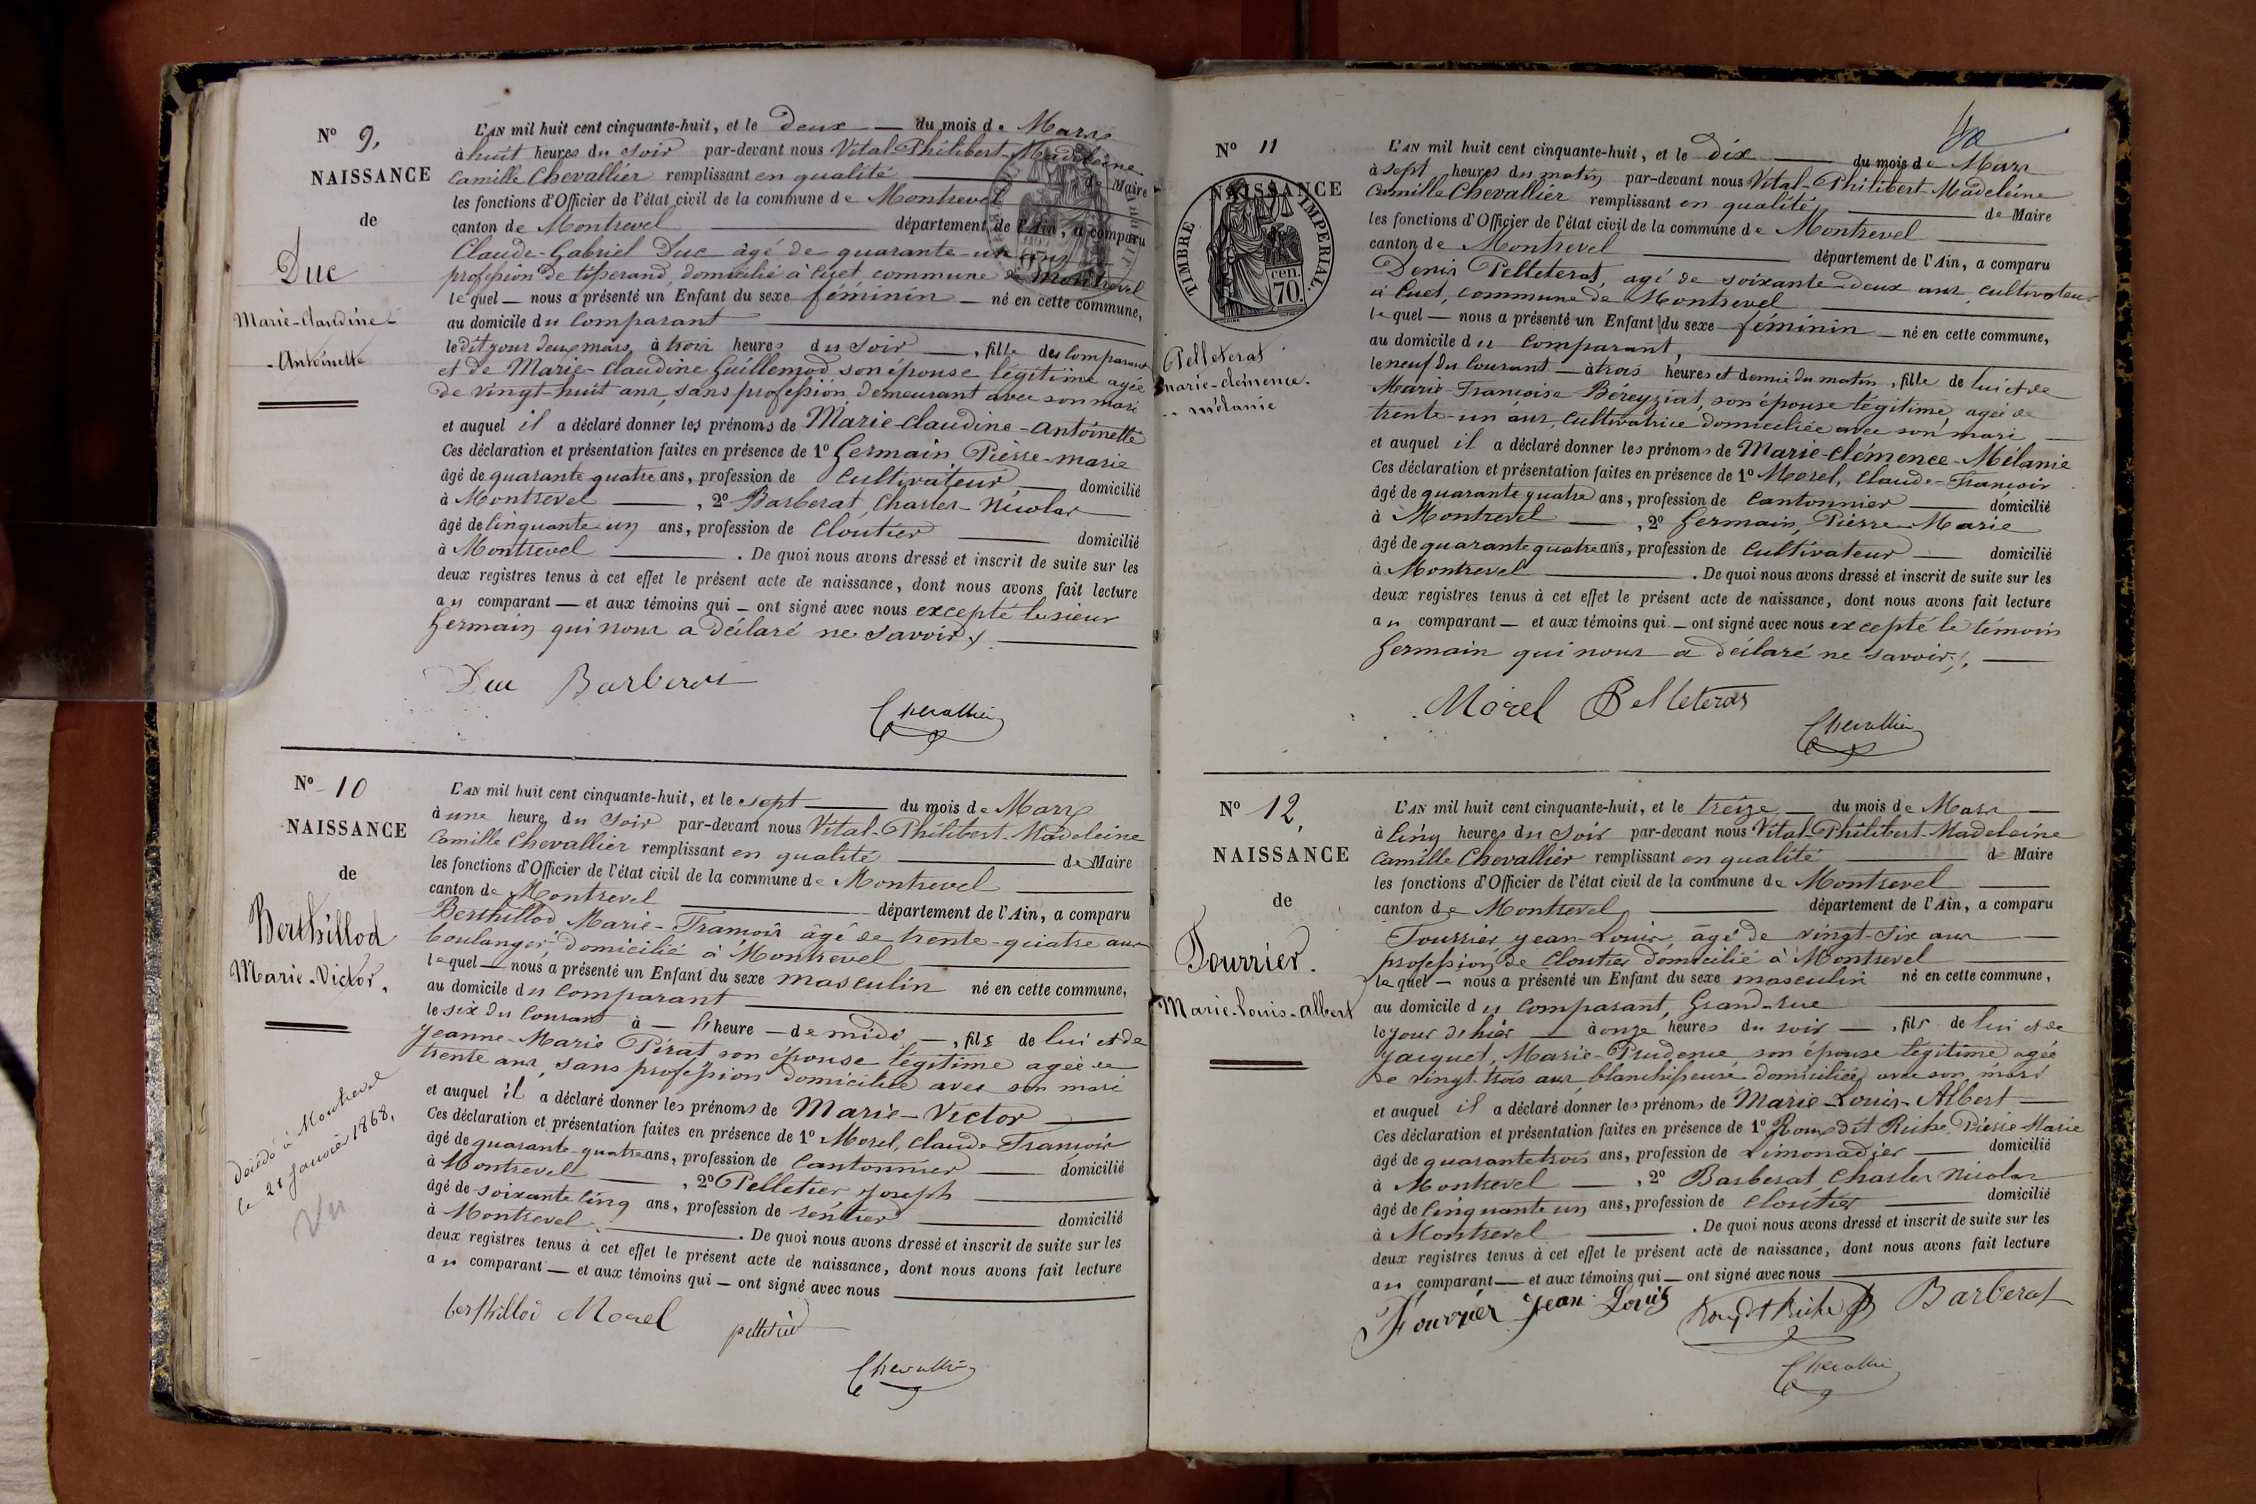 N° 9,
NAISSANCE
de
Duc
Marie-Claudine-
-Antoinette
L'AN mil huit cent cinquante-huit, et le deux — du mois de Mars
à huit heures du soir par-devant nous Vital-Philibert-Madeleine
Camille Chevallier remplissant en qualité — de Maire
les fonctions d'Officier de l'état civil de la commune de Montrevel
canton de Montrevel — département de l'Ain, a comparu
Claude-Gabriel Duc âgé de quarante-un ans
profession de tisserand, domicilié à Cuet commune de Montrevel
lequel — nous a présenté un Enfant du sexe féminin — né en cette commune,
au domicile du comparant
ledit jour deux mars, à trois heures du soir —, fille des comparant
et de Marie-Claudine Guillemod son épouse légitime agée
de vingt-huit ans, sans profession, demeurant avec son mari
et auquel il a déclaré donner les prénoms de Marie-Claudine-Antoinette
Ces déclaration et présentation faites en présence de 1° Germain Pierre-Marie
âgé de quarante quatre ans, profession de Cultivateur — domicilié
à Montrevel —, 2° Barberat, Charles-Nicolas
âgé de cinquante un ans, profession de Cloutier — domicilié
à Montrevel — . De quoi nous avons dressé et inscrit de suite sur les
deux registres tenus à cet effet le présent acte de naissance, dont nous avons fait lecture
au comparant — et aux témoins qui — ont signé avec nous excepté le sieur
Germain qui nous a déclaré ne savoir ./.
Duc Barberat
Chevallier
N° 10
NAISSANCE
de
Berthillod
Marie-Victor.
Décédé à Montrevel
le 21 janvier 1868.
Vu
L'AN mil huit cent cinquante-huit, et le sept — du mois de Mars
à une heure du soir par-devant nous Vital-Philibert-Madeleine
Camille Chevallier remplissant en qualité — de Maire
les fonctions d'Officier de l'état civil de la commune de Montrevel
canton de Montrevel — département de l'Ain, a comparu
Berthillod Marie-François âgé de trente-quatre ans
boulanger, domicilié à Montrevel
lequel — nous a présenté un Enfant du sexe masculin né en cette commune,
au domicile du comparant
le six du courant à — l'heure — de midi —, fils de lui et de
Jeanne-Marie Pirat son épouse légitime agée de
trente ans, sans profession domiciliée avec son mari
et auquel il a déclaré donner les prénoms de Marie-Victor
Ces déclaration et présentation faites en présence de 1° Morel, Claude-François
âgé de quarante-quatre ans, profession de Cantonnier — domicilié
à Montrevel —, 2° Pelletier Joseph
âgé de soixante cinq ans, profession de rentier — domicilié
à Montrevel. — . De quoi nous avons dressé et inscrit de suite sur les
deux registres tenus à cet effet le présent acte de naissance, dont nous avons fait lecture
au comparant — et aux témoins qui — ont signé avec nous
berthillod Morel pelletier
Chevallier
N° 11
NAISSANCE
TIMBRE IMPERIAL.
70 cen.
Pelleterat
marie-clémence-
-- mélanie
L'AN mil huit cent cinquante-huit, et le dix — du mois de Mars
à sept heures du matin par-devant nous Vital-Philibert-Madeleine
Camille Chevallier remplissant en qualité — de Maire
les fonctions d'Officier de l'état civil de la commune de Montrevel
canton de Montrevel — département de l'Ain, a comparu
Denis Pelleterat, agé de soixante-deux ans, cultivateur
à Cuet, commune de Montrevel
lequel — nous a présenté un Enfant du sexe féminin — né en cette commune,
au domicile du comparant,
le neuf du courant — à trois heures et demie du matin, fille de lui et de
Marie-Françoise Béreyziat, son épouse légitime, agée de
trente-un ans, Cultivatrice domiciliée avec son mari —
et auquel il a déclaré donner les prénoms de Marie-Clémence-Mélanie
Ces déclaration et présentation faites en présence de 1° Morel, Claude-François
âgé de quarante quatre ans, profession de Cantonnier — domicilié
à Montrevel —, 2° Germain, Pierre-Marie
âgé de quarante quatre ans, profession de Cultivateur — domicilié
à Montrevel — . De quoi nous avons dressé et inscrit de suite sur les
deux registres tenus à cet effet le présent acte de naissance, dont nous avons fait lecture
au comparant — et aux témoins qui — ont signé avec nous excepté le témoin
Germain qui nous a déclaré ne savoir ./. —
Morel Pelleterat
Chevallier
N° 12,
NAISSANCE
de
Fourrier.
Marie-Louis-Albert
L'AN mil huit cent cinquante-huit, et le treize — du mois de Mars —
à cinq heures du soir par-devant nous Vital-Philibert-Madeleine
Camille Chevallier remplissant en qualité — de Maire
les fonctions d'Officier de l'état civil de la commune de Montrevel —
canton de Montrevel — département de l'Ain, a comparu
Fourrier Jean-Louis âgé de vingt-six ans —
profession de Cloutier domicilié à Montrevel —
lequel — nous a présenté un Enfant du sexe masculin né en cette commune,
au domicile du comparant, Grand-rue
le jour d'hier — à onze heures du soir —, fils de lui et de
Jacquet, Marie-Prudence son épouse légitime agée
de vingt-trois ans, blanchisseuse domiciliée avec son mari
et auquel il a déclaré donner les prénoms de Marie-Louis-Albert —
Ces déclaration et présentation faites en présence de 1° Roux dit Riche Pierre Marie
âgé de quarante trois ans, profession de Limonadier — domicilié
à Montrevel —, 2° Barberat Charles Nicolas
âgé de cinquante un ans, profession de Cloutier — domicilié
à Montrevel — . De quoi nous avons dressé et inscrit de suite sur les
deux registres tenus à cet effet le présent acte de naissance, dont nous avons fait lecture
au comparant — et aux témoins qui — ont signé avec nous
Fourrier Jean Louis Roux dt Riche Barberat
Chevallier